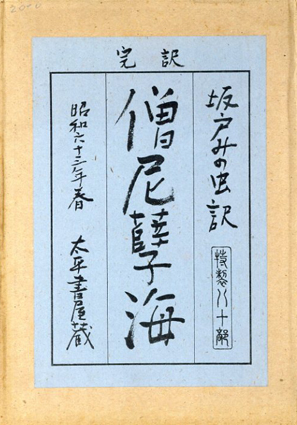 完訳
坂戸みの虫訳
特製八十部
僧尼孽海
昭和六十三年春
太平書屋蔵